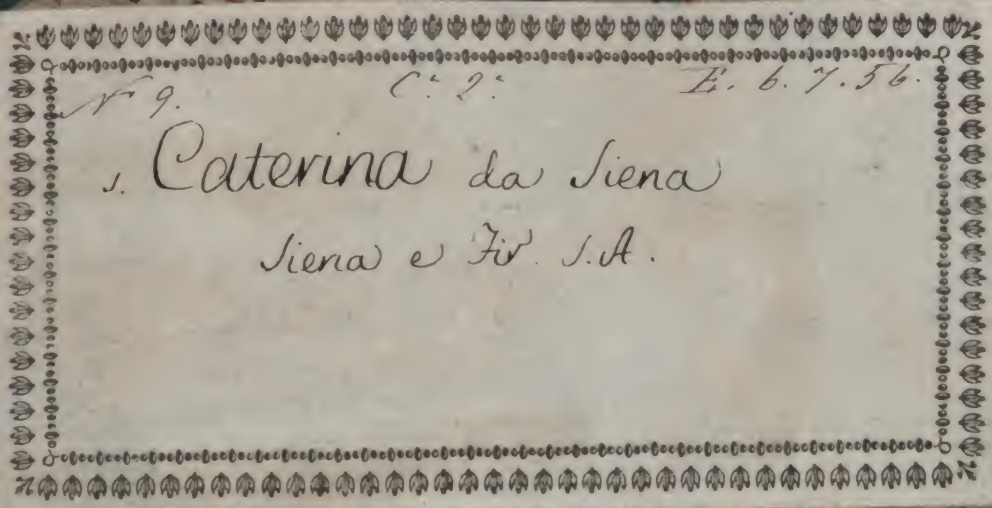 N 9. C. 2. E. 6. 7. 56.
s. Caterina da Siena
Siena e Fir. S.A.